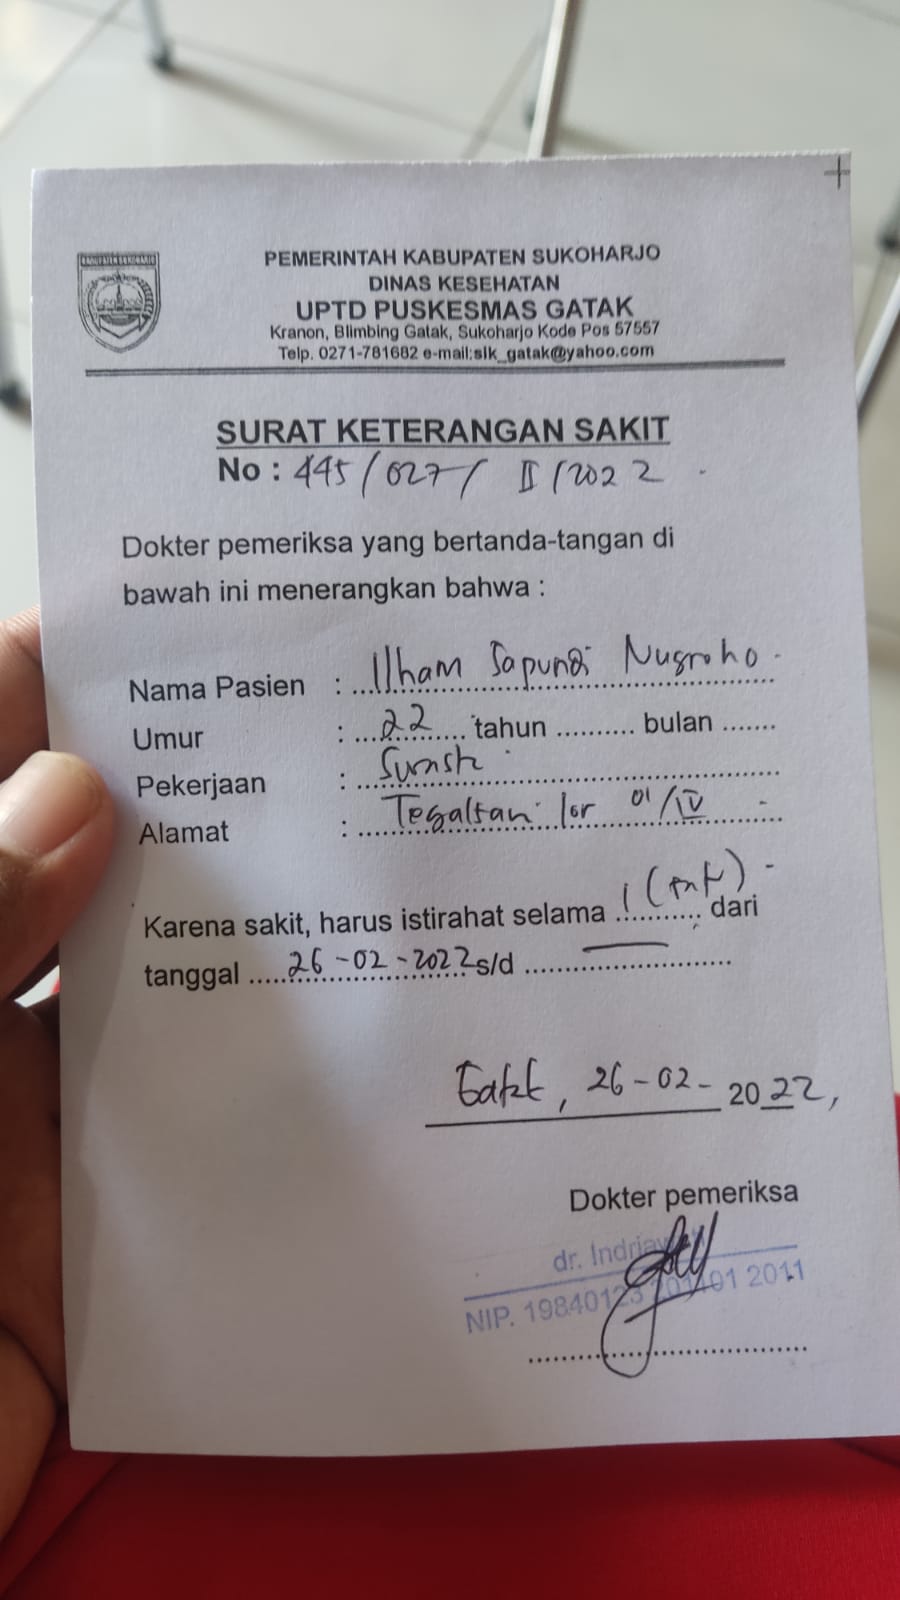 PEMERINTAH KABUPATEN SUKOHARJO
DINAS KESEHATAN
UPTD PUSKESMAS GATAK
Kranon, Blimbing Gatak, Sukoharjo Kode Pos 57557
Telp. 0271-781682 e-mail:sik_gatak@yahoo.com
SURAT KETERANGAN SAKIT
No : 445/027/ II/2022
Dokter pemeriksa yang bertanda-tangan di
bawah ini menerangkan bahwa :
Nama Pasien : Ilham Nugroho
Umur : 22 tahun .......... bulan .......
Pekerjaan :
Alamat : lor 01/IV
Karena sakit, harus istirahat selama 1 dari
tanggal 26-02-2022 s/d —
26-02-2022,
Dokter pemeriksa
dr.
NIP. 19840123 2011